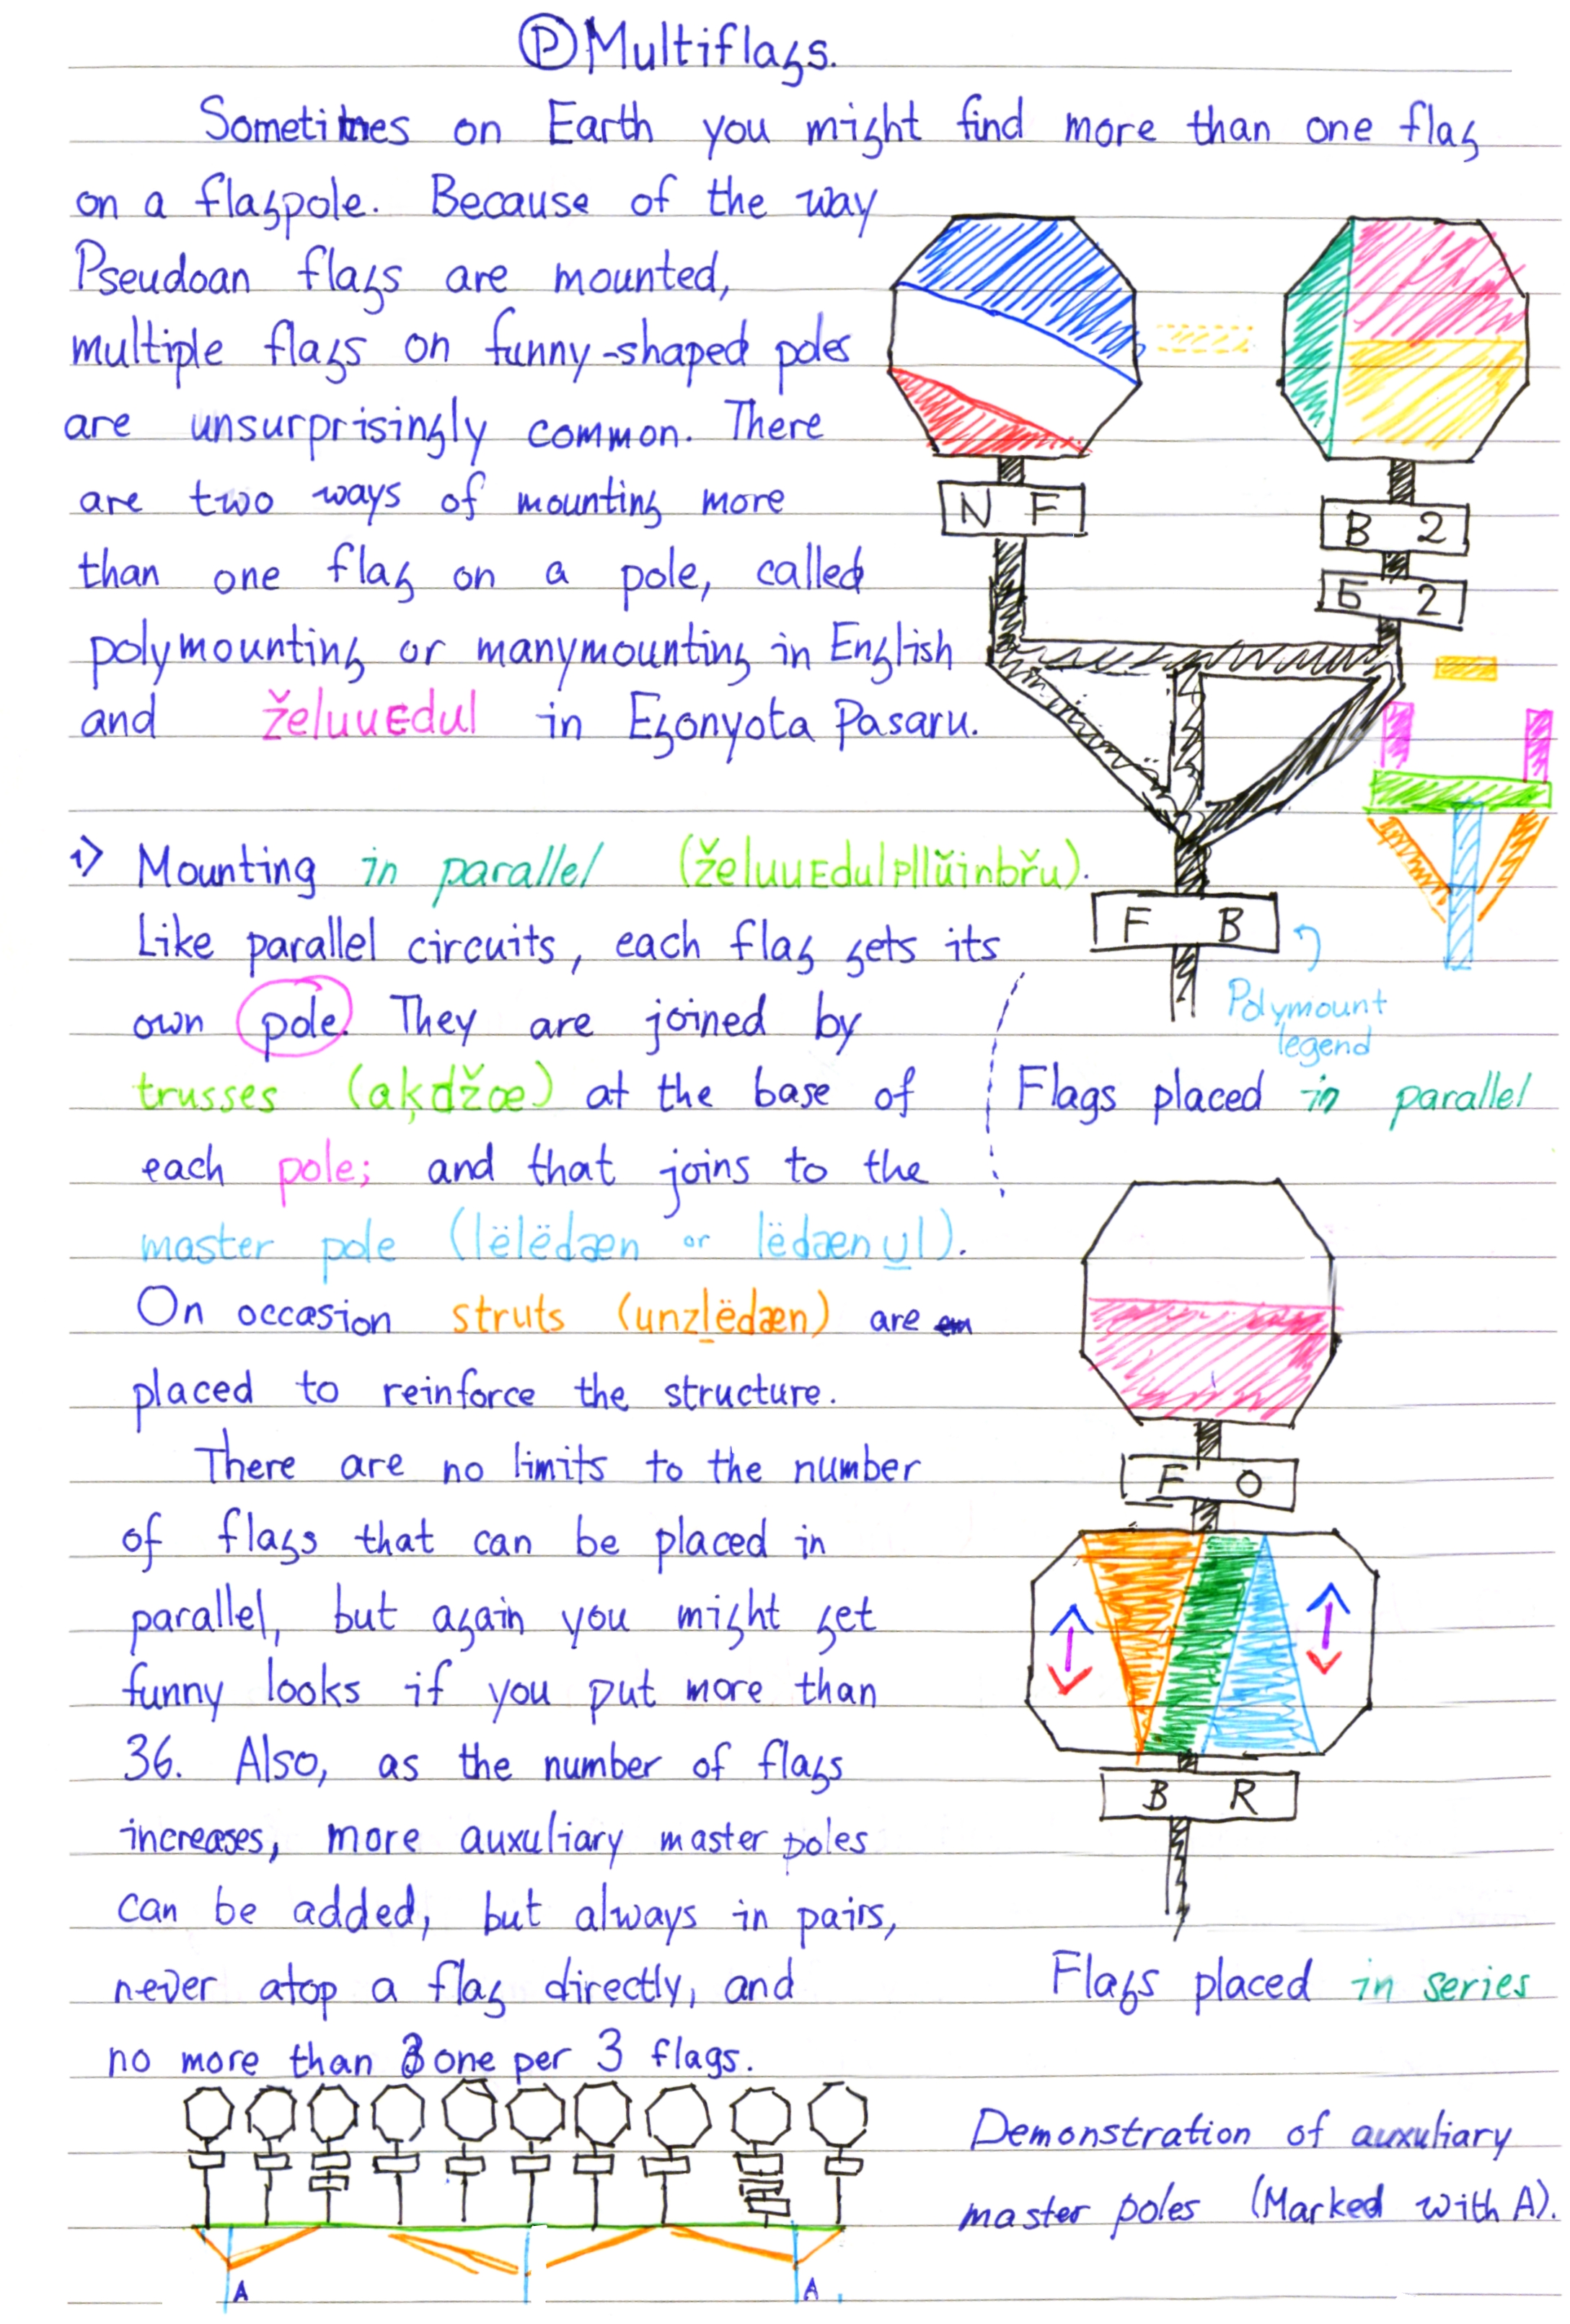 Ⓟ Multiflags.
Sometimes on Earth you might find more than one flag
on a flagpole. Because of the way
Pseudoan flags are mounted,
multiple flags on funny-shaped poles
are unsurprisingly common. There
are two ways of mounting more
than one flag on a pole, called
polymounting or manymounting in English
and želuuEdul in Egonyota Pasaru.
N F
B 2
Б 2
F B
Polymount
legend
Flags placed in parallel
1) Mounting in parallel (želuuEdulPllŭinbřu).
Like parallel circuits, each flag gets its
own pole. They are joined by
trusses (aķdžœ) at the base of
each pole; and that joins to the
master pole (lëlëdæn or lëdænul).
On occasion struts (unzlëdæn) are
placed to reinforce the structure.
There are no limits to the number
of flags that can be placed in
parallel, but again you might get
funny looks if you put more than
36. Also, as the number of flags
increases, more auxuliary master poles
can be added, but always in pairs,
never atop a flag directly, and
no more than one per 3 flags.
F O
B R
Flags placed in series
A A
Demonstration of auxuliary
master poles (Marked with A).